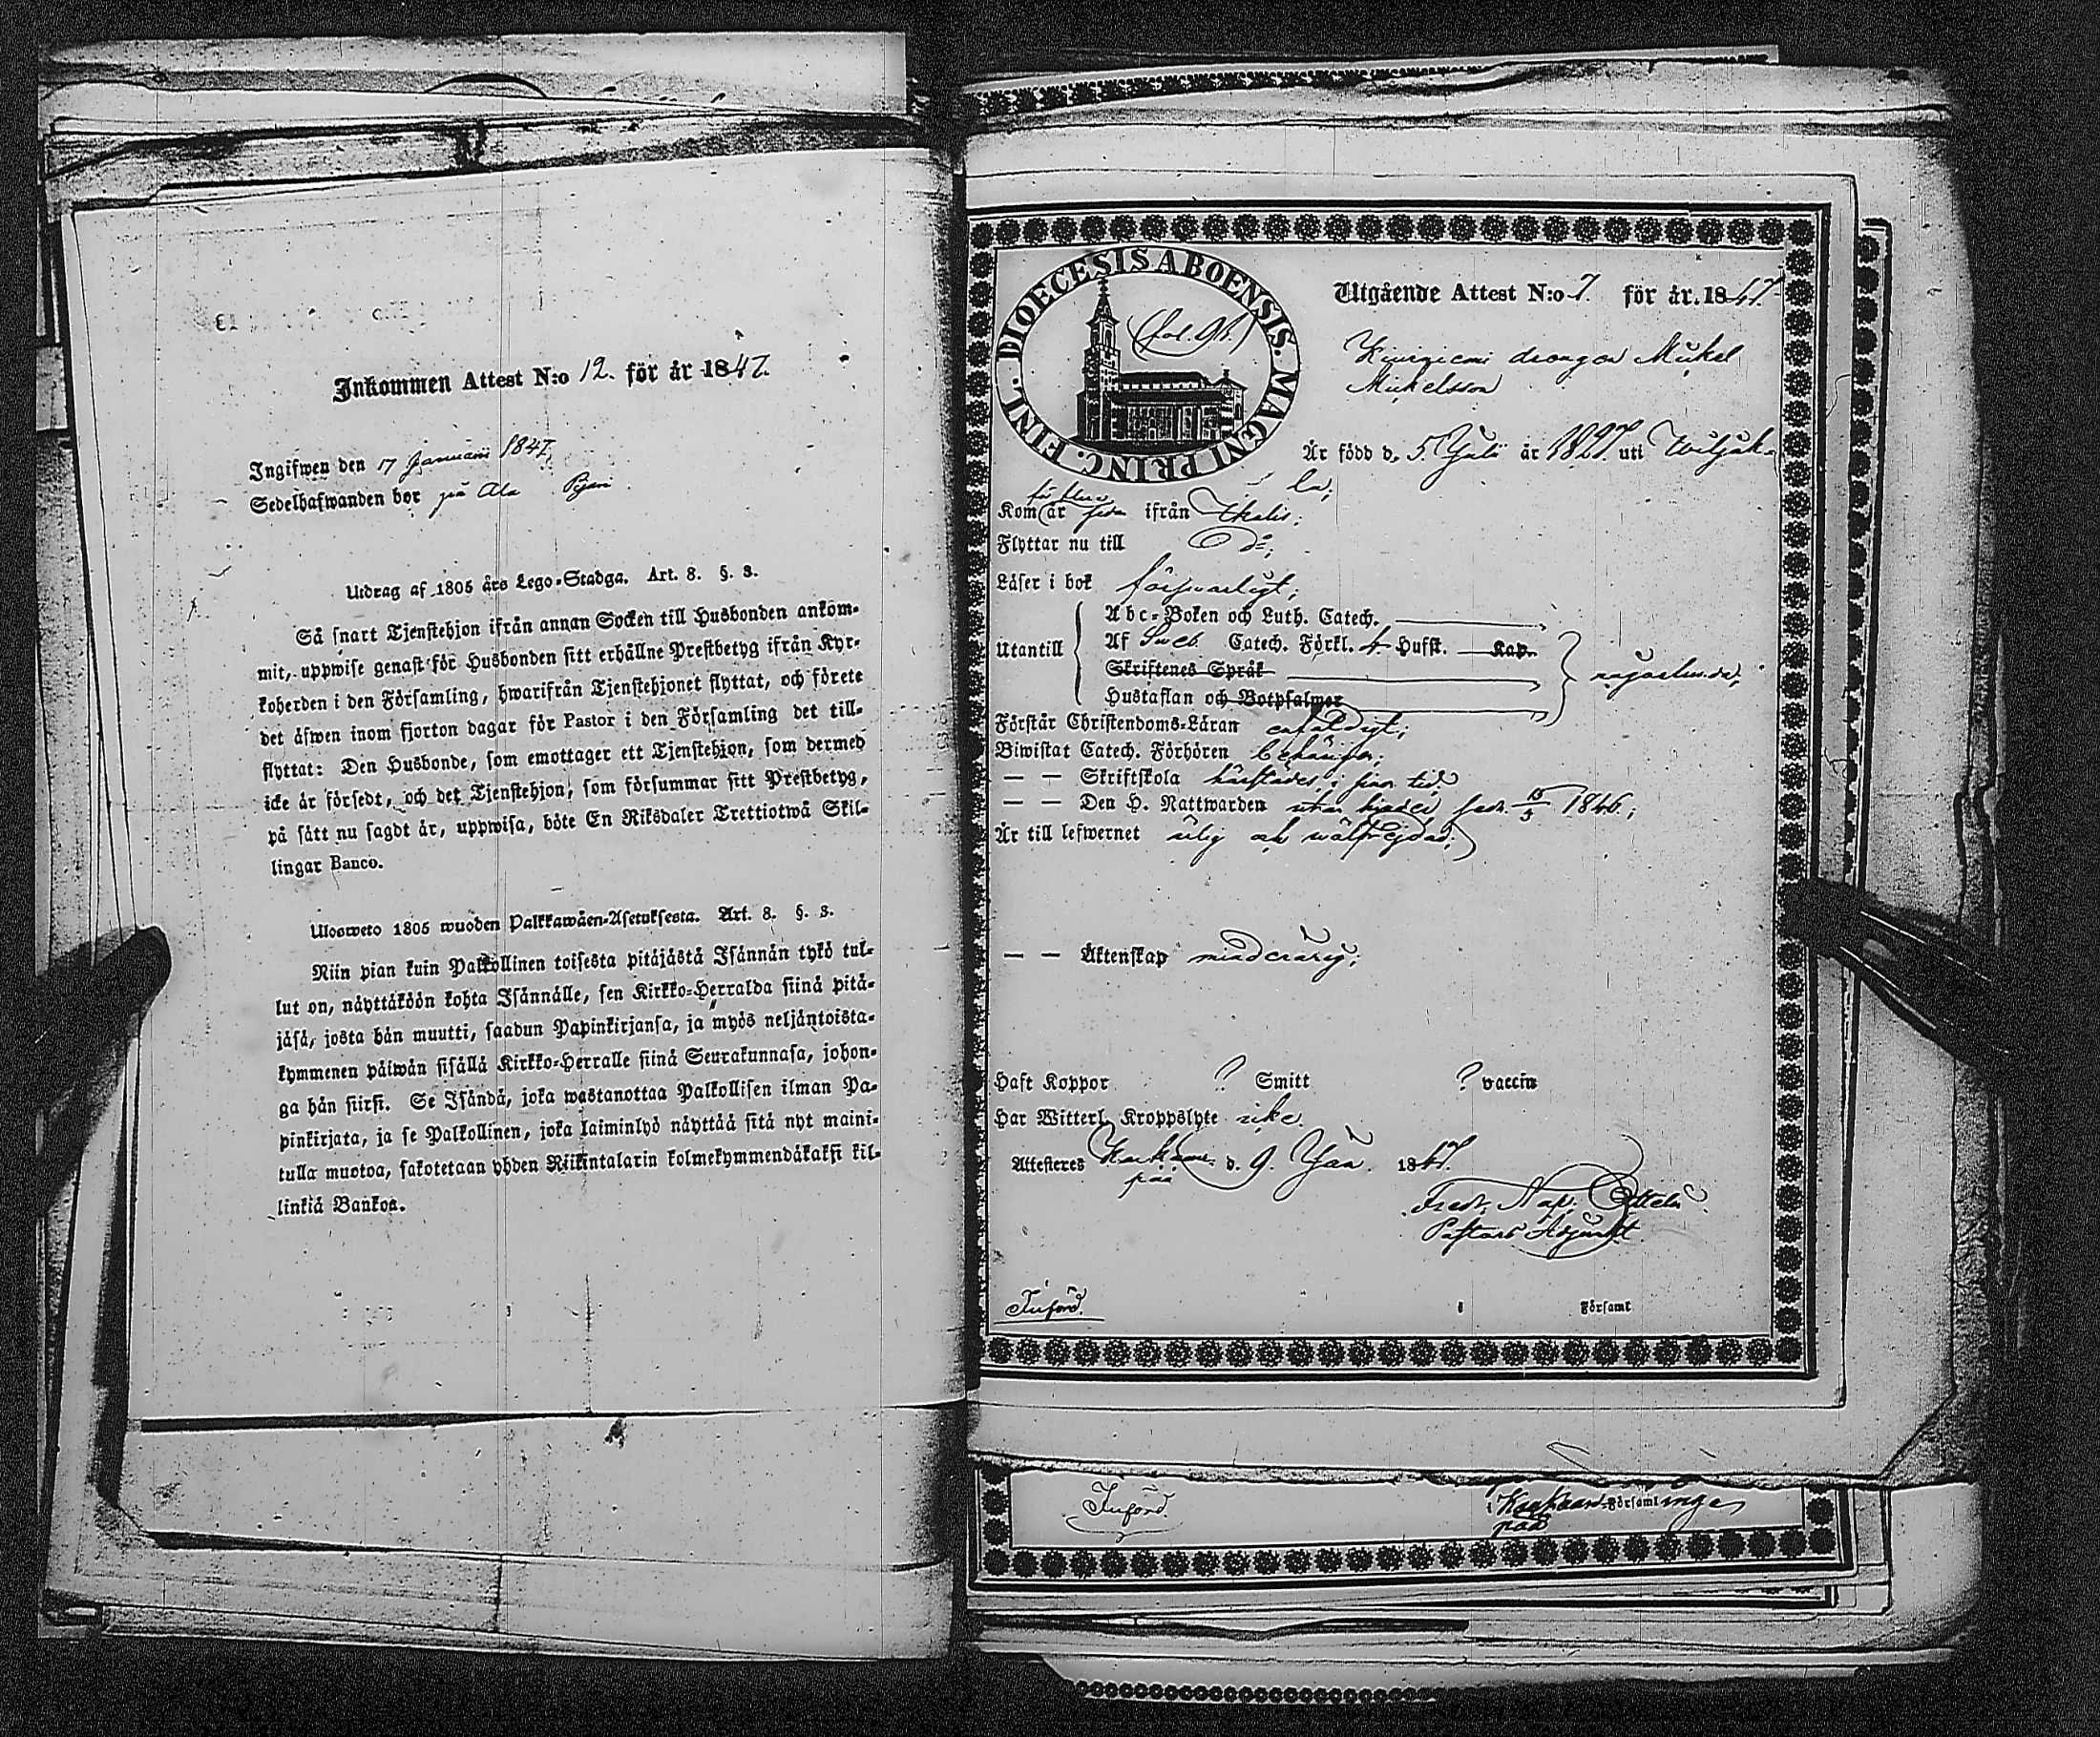 Inkommen Attest N:o 12. för år 1847.
Ingifwen den 17 Januarii 1847
Sedelhafwanden bor på Ala
Utdrag af 1805 års Lego-Stadga. Art. 8. §. 3.
Så snart Tjenstehjon ifrån annan Socken till Husbonden ankom-
mit, uppwise genast för Husbonden sitt erhållne Prestbetyg ifrån Kyr-
koherden i den Församling, hwarifrån Tjenstehjonet flyttat, och förete
det äfwen inom fjorton dagar för Pastor i den Församling det till-
flyttat: Den Husbonde, som emottager ett Tjenstehjon, som dermed
icke är försedt, och det Tjenstehjon, som försummar sitt Prestbetyg,
på sätt nu sagdt är, uppwisa, böte En Riksdaler Trettiotwå Skil-
lingar Banco.
Ulosweto 1805 wuoden Palkkawäen-Asetuksesta. Art. 8. §. 3.
Niin pian kuin Palkollinen toisesta pitäjästä Isännän tykö tul-
lut on, näyttäköön kohta Isännälle, sen Kirkko-Herralda siinä pitä-
jäsä, josta hän muutti, saadun Papinkirjansa, ja myös neljäntoista-
kymmenen päiwän sisällä Kirkko-Herralle siinä Seurakunnasa, johon-
ga hän siirsi. Se Isändä, joka wastanottaa Palkollisen ilman Pa-
pinkirjata, ja se Palkollinen, joka laiminlyö näyttää sitä nyt maini-
tulla muotoa, sakotetaan yhden Riikintalarin kolmekymmendäkaksi kil-
linkiä Bankoa.
DIOECESIS ABOENSIS. MAGNI PRINC. FINL.
Utgående Attest N:o 7. för år. 1847.
drängen Mickel
Mickelsson
Är född d. 5. Julii år 1827. uti Wiljak-
la;
Kom år ifrån Ikalis;
Flyttar nu till do;
Läser i bok förswarligt;
Utantill
Abc-Boken och Luth. Catech.
Af Sveb. Catech. Förkl. 4 Hufst. Kap.
Skriftenes Språk
Hustaflan och Botpsalmer
någorlunda;
Förstår Christendoms-Läran enfaldigt;
Biwistat Catech. Förhören behörigen;
— — Skriftskola härstädes i sin tid.
— — Den H. Nattwarden utan hinder sedn. 1846;
Är till lefwernet ärlig och wälfrejdad;
— — Äktenskap minderårig;
Haft Koppor ? Smitt ? vaccin
Har Witterl. Kroppslyte icke.
Attesteras Karkku d. 9. Jan. 1847.
Fredr. Nap.
Pastors Adjunkt
Införd.
i Församl
Införd.
i Församlinge